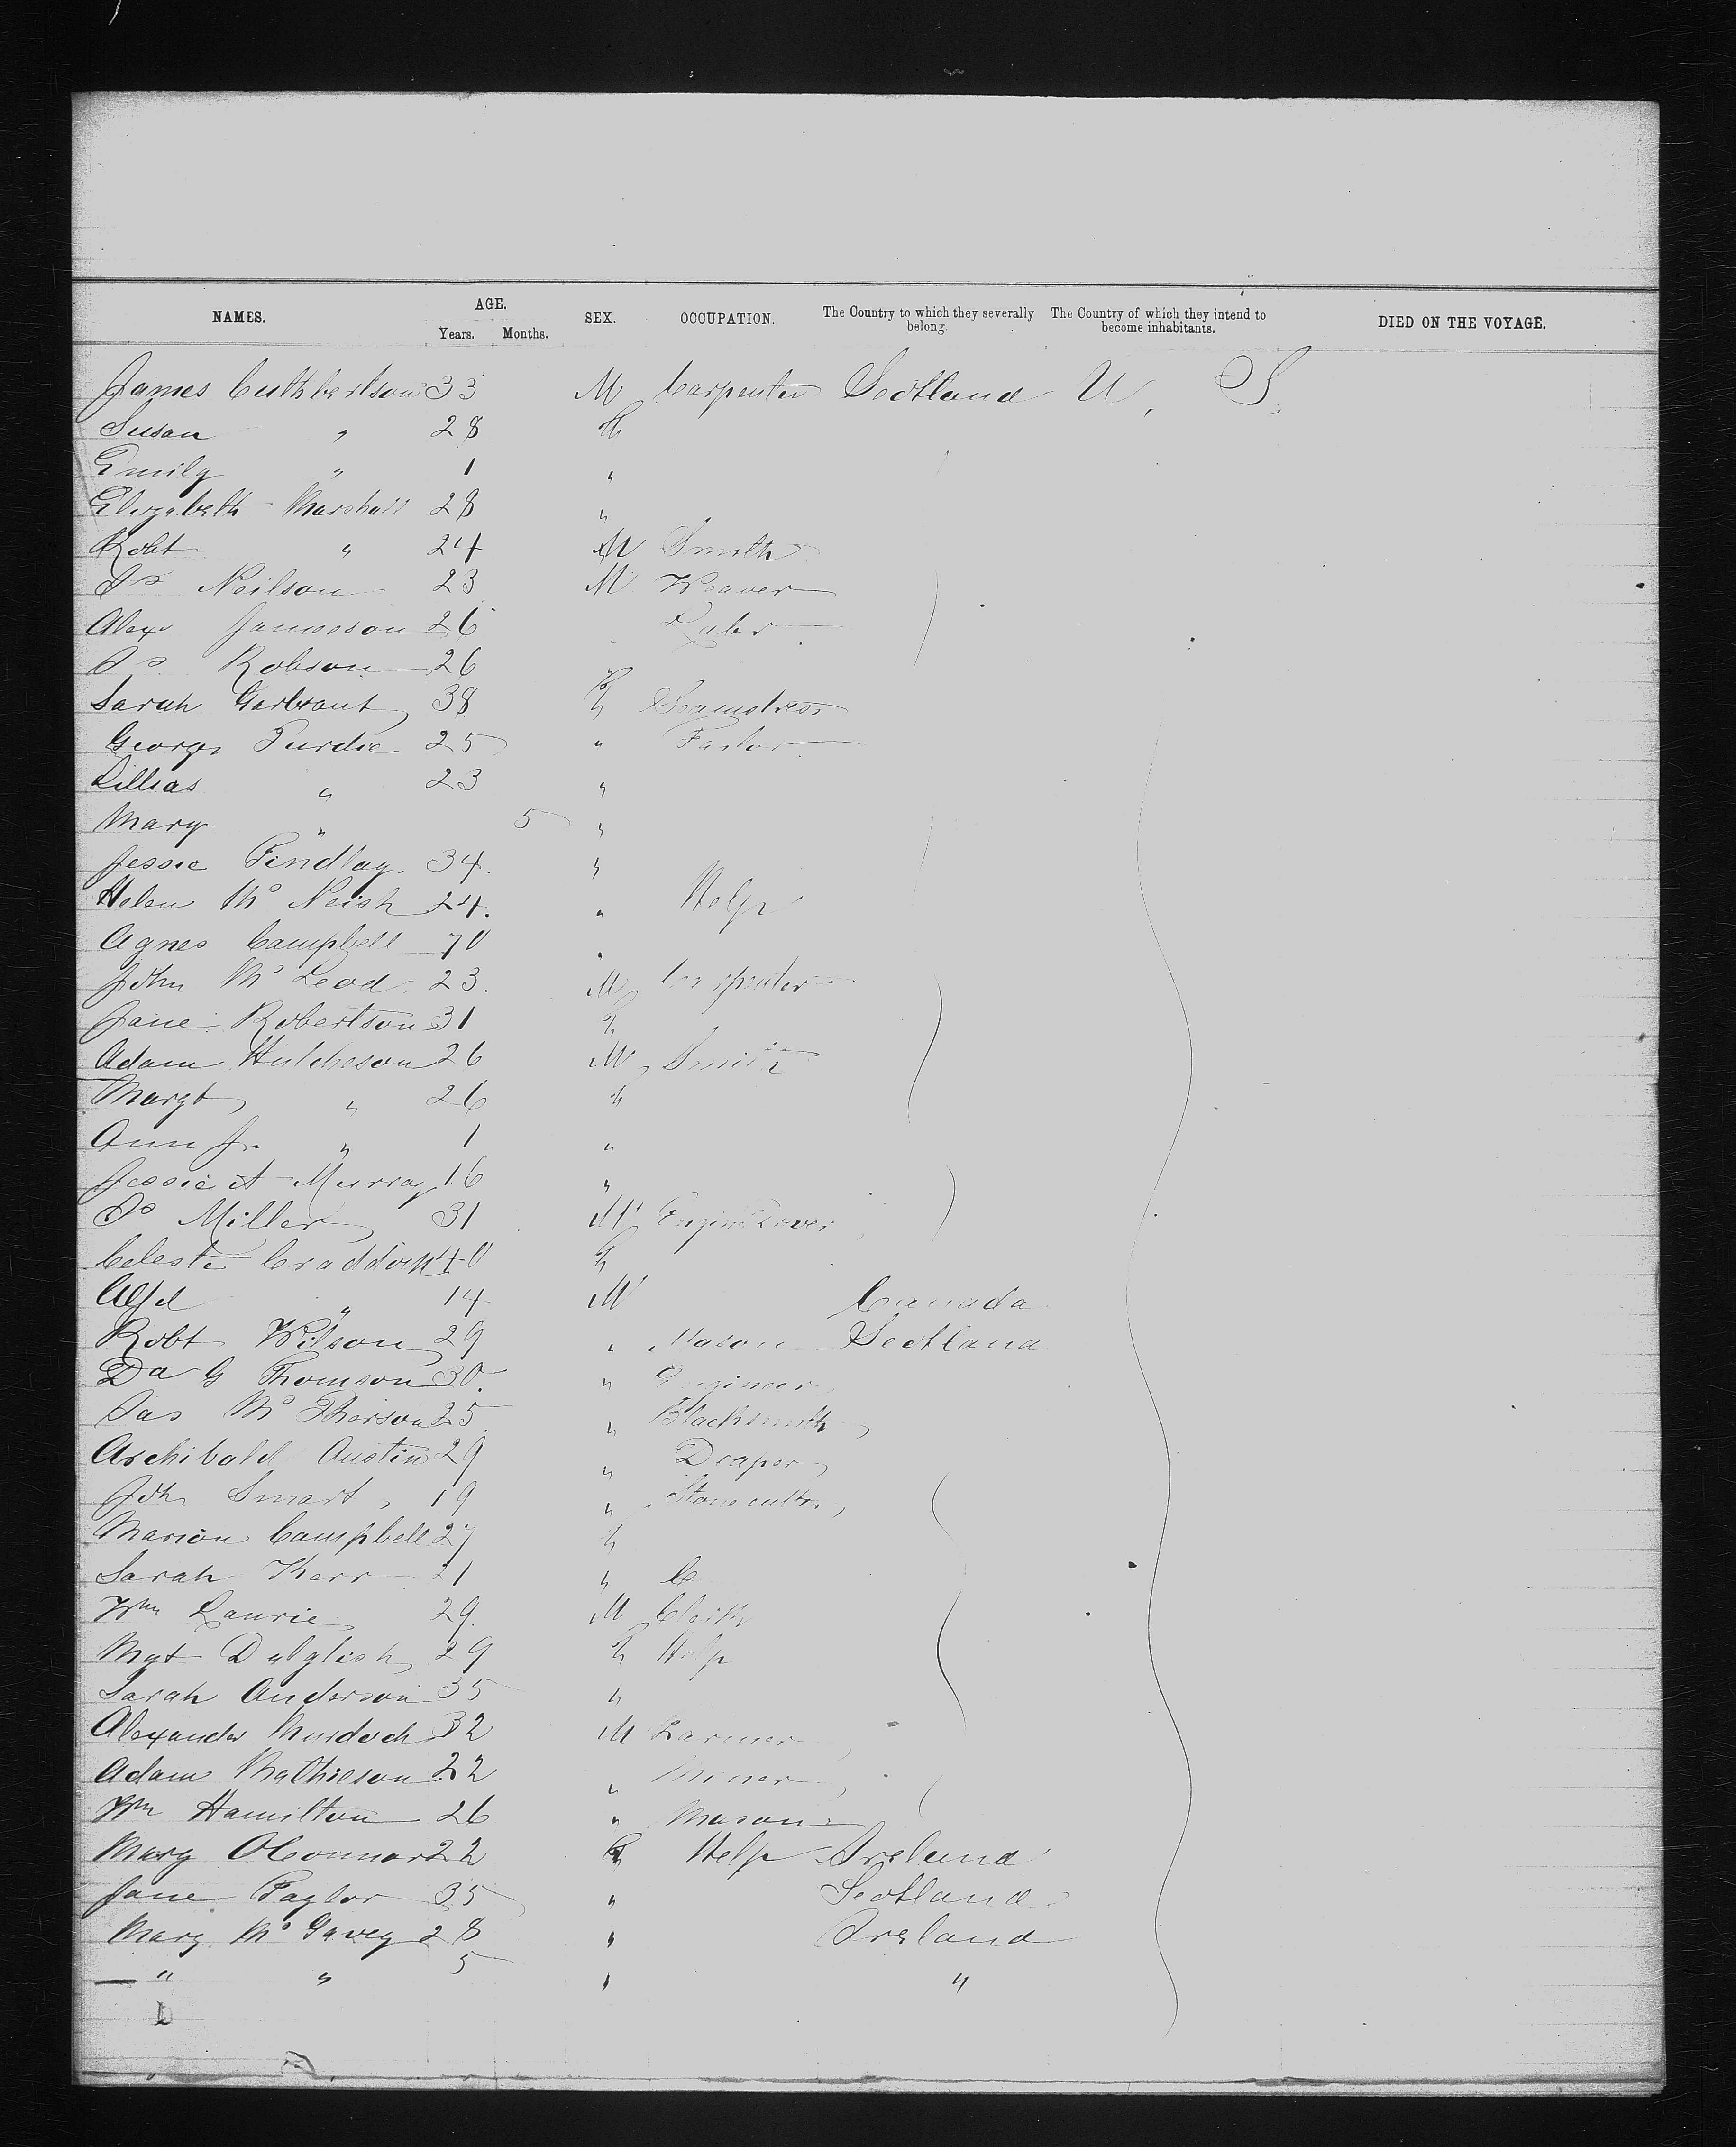 NAMES. AGE. SEX. OCCUPATION. The Country to which they severally belong. The Country of which they intend to become inhabitants. DIED ON THE VOYAGE.
Years. Months.
James Cuthbertson 33 M Carpenter Scotland U. S.
Susan " 28 F
Emily " 1 "
Elizabeth Marshall 28 "
Robt " 24 M Smith
Do Neilson 23 M Weaver
Alex Jameson 26 Labr
Do Robson 26
Sarah Garbrant 38 F Seamstress
George Purdie 25 " Tailor
Lillias " 23 "
Mary " 5 "
Jessie Findlay 34 "
Helen Mc Neish 24. " Help
Agnes Campbell 70 "
John Mc Leod 23. M Carpenter
Jane Robertson 31 F
Adam Hutcheson 26 M Smith
Margt " 26 F
Ann Jr " 1 "
Jessie A Murray 16 "
Do Miller 31 M Engine Driver
Celeste Craddock 40 F
Alfd " 14 M Canada
Robt Wilson 29 " Mason Scotland
Da G Thomson 30 " Engineer
Jas Mc Pherson 25 " Blacksmith
Archibald Austin 29 " Draper
John Smart 19 " Stonecutter
Marion Campbell 27 F
Sarah Kerr 21 "
Wm Laurie 29 M Clerk
Mgt Dalglish 29 F Help
Sarah Anderson 35 "
Alexander Murdoch 32 M Farmer
Adam Mathieson 22 " Miner
Wm Hamilton 26 " Mason
Mary OConnor 22 F Help Ireland
Jane Taylor 35 " Scotland
Mary Mc Gavey 28 " Ireland
— " " 5 " "